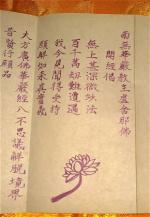 南無華嚴教主盧舍那佛
開經偈
無上甚深微妙法
百千萬劫難遭遇
我今見聞得受持
願解如來真實義
大方廣佛華嚴經入不思議解脫境界
普賢行願品